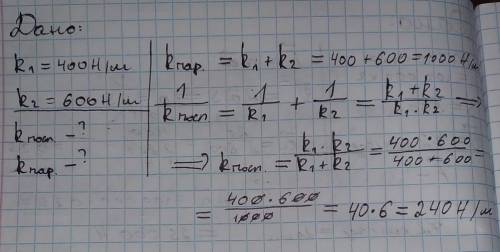 Дано:
k₁ = 400 Н/м
k₂ = 600 Н/м
kпосл. - ?
kпар. - ?
kпар. = k₁ + k₂ = 400 + 600 = 1000 Н/м
1/kпосл. = 1/k₁ + 1/k₂ = (k₁ + k₂)/(k₁ · k₂) ⟹
⟹ kпосл. = (k₁ · k₂)/(k₁ + k₂) = (400 · 600)/(400 + 600) =
= (400 · 600)/1000 = 40 · 6 = 240 Н/м